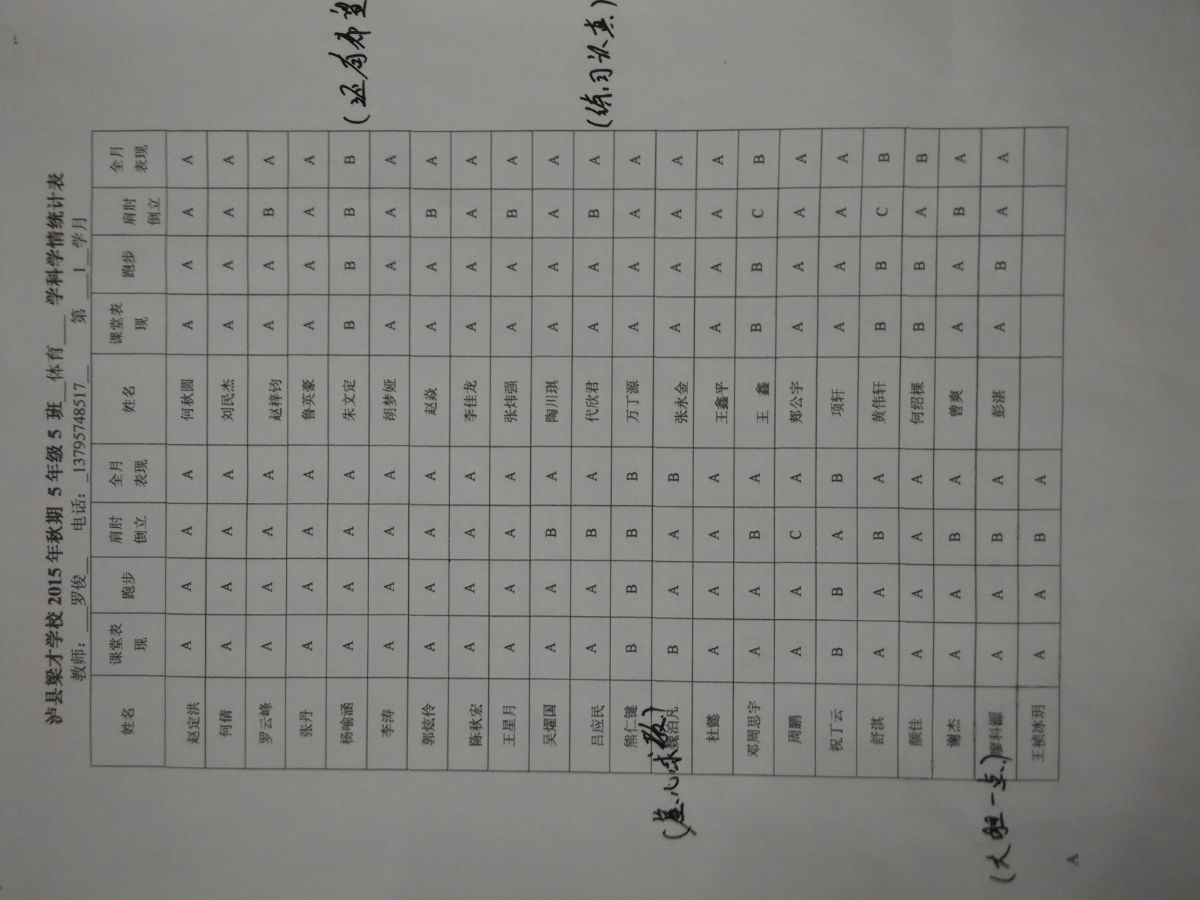 泸县梁才学校 2015 年秋期 5 年级 5 班 体育 学科学情统计表
教师： 罗俊 电话： 13795748517 第 1 学月
姓名 课堂表现 跑步 肩肘倒立 全月表现 姓名 课堂表现 跑步 肩肘倒立 全月表现
赵定洪 A A A A 何秋圆 A A A A
何倩 A A A A 刘民杰 A A A A
罗云峰 A A A A 赵梓钧 A A B A
张丹 A A A A 鲁英豪 A A A A
杨喻涵 A A A A 朱文定 B B B B (还有希望
李涛 A A A A 胡梦娅 A A A A
郭炫伶 A A A A 赵焱 A A B A
陈秋宏 A A A A 李佳龙 A A A A
王星月 A A A A 张炜强 A A B A
吴燿国 A A B A 陶川琪 A A A A
吕应民 A A B A 代欣君 A A B A (练习认真)
熊仁键 B B B B 万丁源 A A A A
(虚心求教) B A A B 张永金 A A A A
杜懿 A A A A 王鑫平 A A A A
邓周思宇 A A B A 王 鑫 B B C B
周鹏 A A C A 郏公宇 A A A A
祝丁云 B B A B 项轩 A A A A
舒淇 A A B A 黄伟轩 B B C B
颜佳 A A A A 何绍棵 B B A B
谢杰 A A B A 曾爽 A A B A
(大胆一点) A A B A 彭湛 A B A A
王桢冰玥 A A B A
A